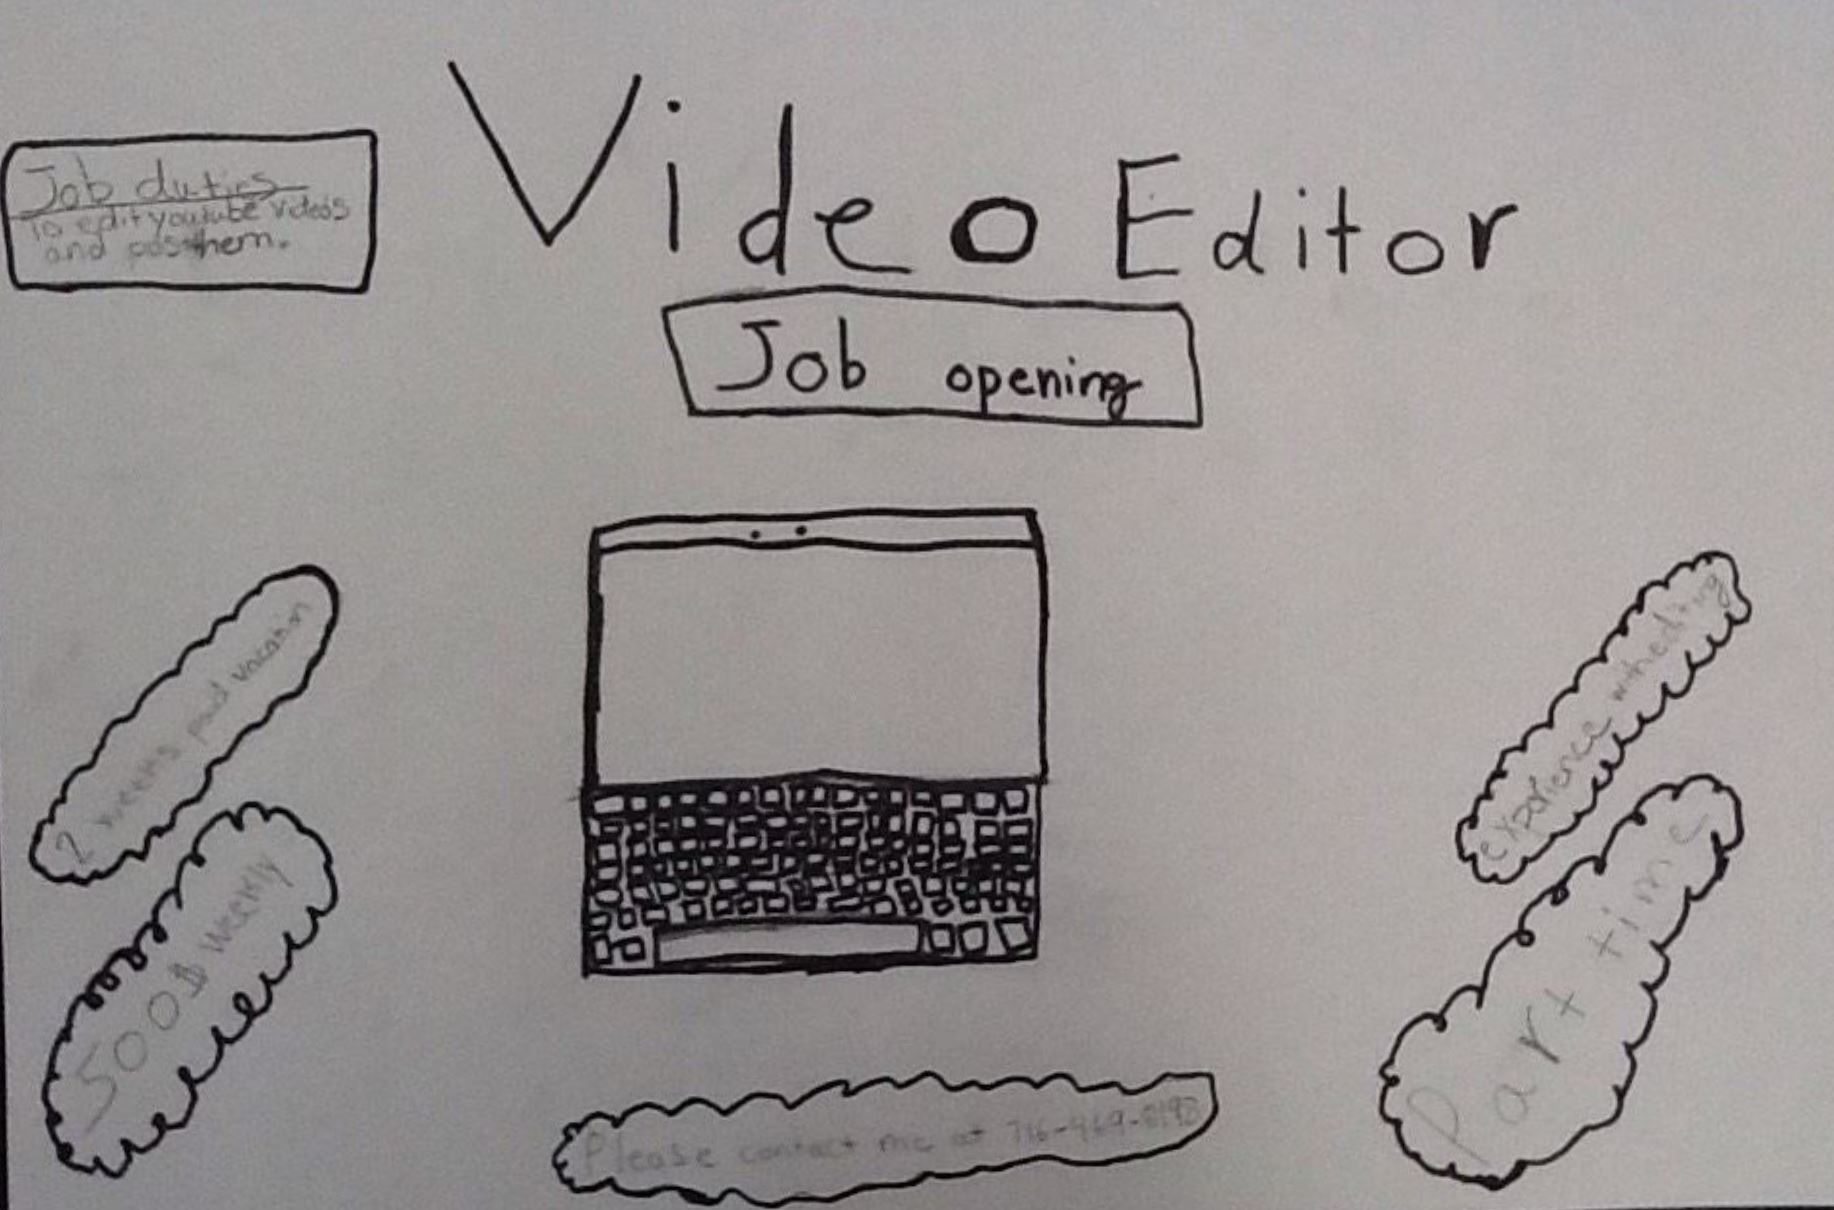 Video Editor
Job duties
To edit youtube videos
and post them.
Job opening
2 weeks paid
experience with editing
500$ weekly
Part time
Please contact me at 716-469-8198